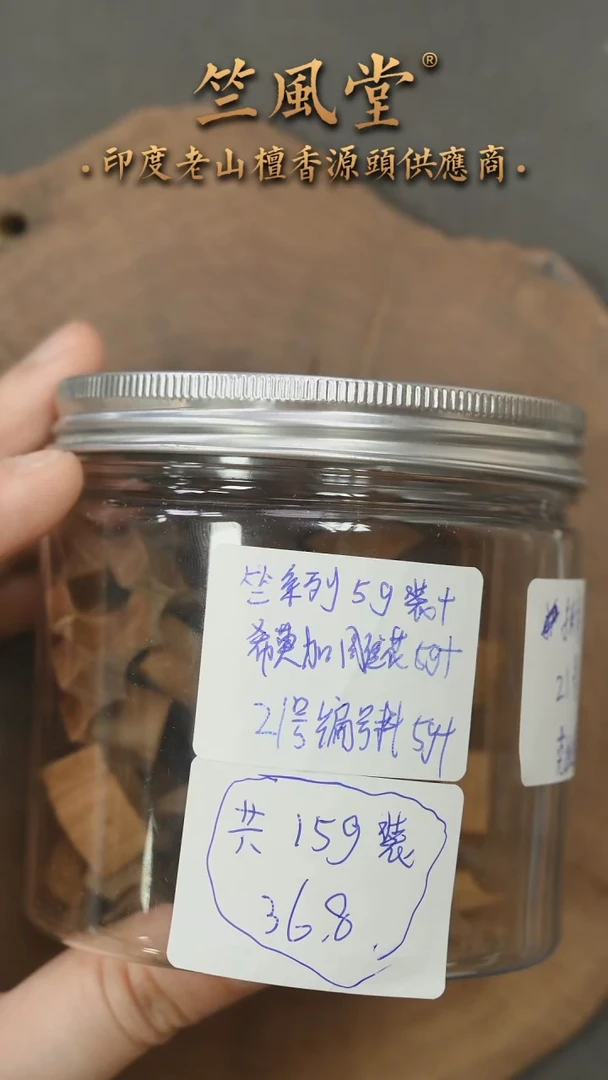 竺風堂®
·印度老山檀香源頭供應商·
竺系列 5g 装+
希莫加雕花 5g+
21号编号料 5g+
共 15g 装
36.8
21号